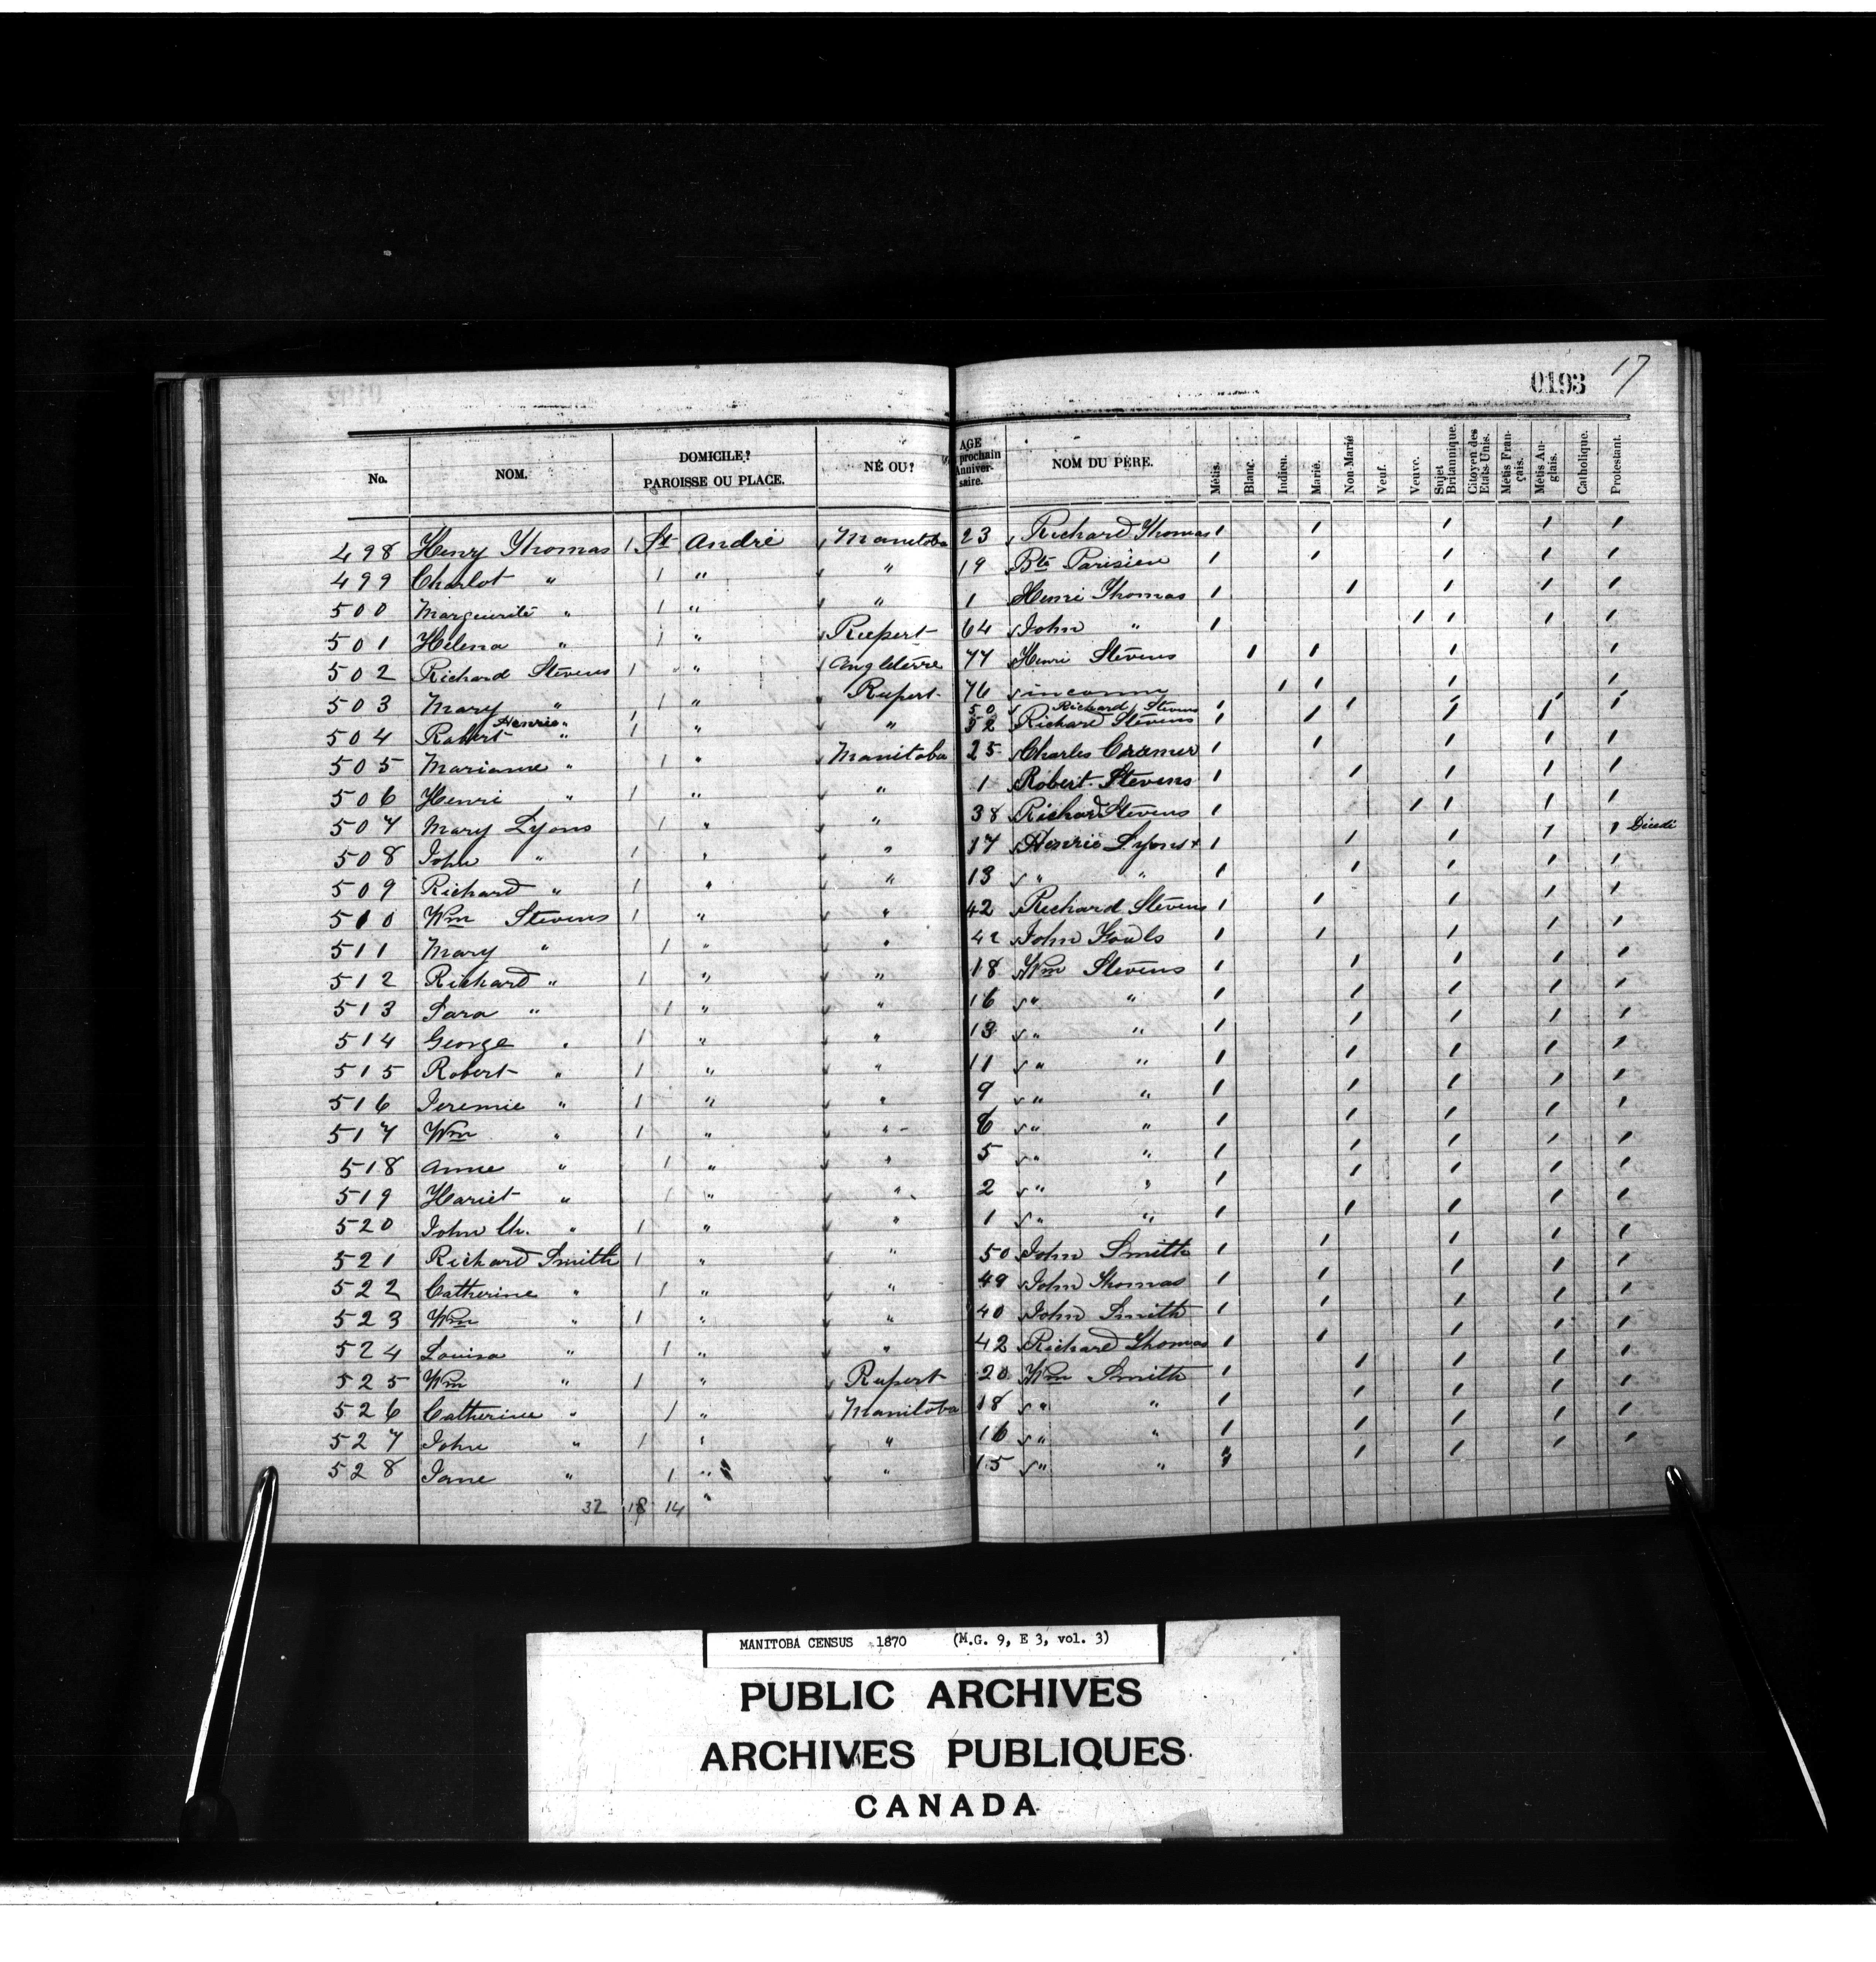 0193 17
No. NOM. DOMICILE? PAROISSE OU PLACE. NÉ OU? AGE prochain Anniver- saire. NOM DU PÈRE. Métis. Blanc. Indien. Marié. Non-Marié Veuf. Veuve. Sujet Britannique. Citoyen des Etats-Unis. Métis Fran- çais. Métis An- glais. Catholique. Protestant.
498 Henry Thomas 1 St André Manitoba 23 Richard Thomas 1 1 1 1 1
499 Charlot " 1 " " 19 Bte Parisien 1 1 1 1 1
500 Marguerite " 1 " " 1 Henri Thomas 1 1 1 1 1
501 Helena " 1 " Rupert 64 John " 1 1 1 1 1
502 Richard Stevens 1 " Angleterre 77 Henri Stevens 1 1 1 1
503 Mary " 1 " Rupert 76 inconnu 1 1 1 1
Henrie " 1 50 Richard Stevens 1 1 1 1 1
504 Robert " 1 " " 32 Richard Stevens 1 1 1 1 1
505 Marianne " 1 " Manitoba 25 Charles Cramer 1 1 1 1 1
506 Henri " 1 " " 1 Robert Stevens 1 1 1 1 1
507 Mary Lyons 1 " " 38 Richard Stevens 1 1 1 1 1
508 John " 1 " " 17 Henrie Lyons + 1 1 1 1 1
509 Richard " 1 " " 13 " " 1 1 1 1 1
510 Wm Stevens 1 " " 42 Richard Stevens 1 1 1 1 1
511 Mary " 1 " " 42 John Fouls 1 1 1 1 1
512 Richard " 1 " " 18 Wm Stevens 1 1 1 1 1
513 Sara " 1 " " 16 " " 1 1 1 1 1
514 George " 1 " " 13 " " 1 1 1 1 1
515 Robert " 1 " " 11 " " 1 1 1 1 1
516 Jeremie " 1 " " 9 " " 1 1 1 1 1
517 Wm " 1 " " 6 " " 1 1 1 1 1
518 Anne " 1 " " 5 " " 1 1 1 1 1
519 Hariet " 1 " " 2 " " 1 1 1 1 1
520 John Ch. " 1 " " 1 " " 1 1 1 1 1
521 Richard Smith 1 " " 50 John Smith 1 1 1 1 1
522 Catherine " 1 " " 49 John Thomas 1 1 1 1 1
523 Wm " 1 " " 40 John Smith 1 1 1 1 1
524 Louisa " 1 " " 42 Richard Thomas 1 1 1 1 1
525 Wm " 1 " Rupert 20 Wm Smith 1 1 1 1 1
526 Catherine " 1 " Manitoba 18 " " 1 1 1 1 1
527 John " 1 " " 16 " " 1 1 1 1 1
528 Jane " 1 " " 15 " " 1 1 1 1 1
32 18 14 "
MANITOBA CENSUS 1870 (M.G. 9, E 3, vol. 3)
PUBLIC ARCHIVES
ARCHIVES PUBLIQUES
CANADA